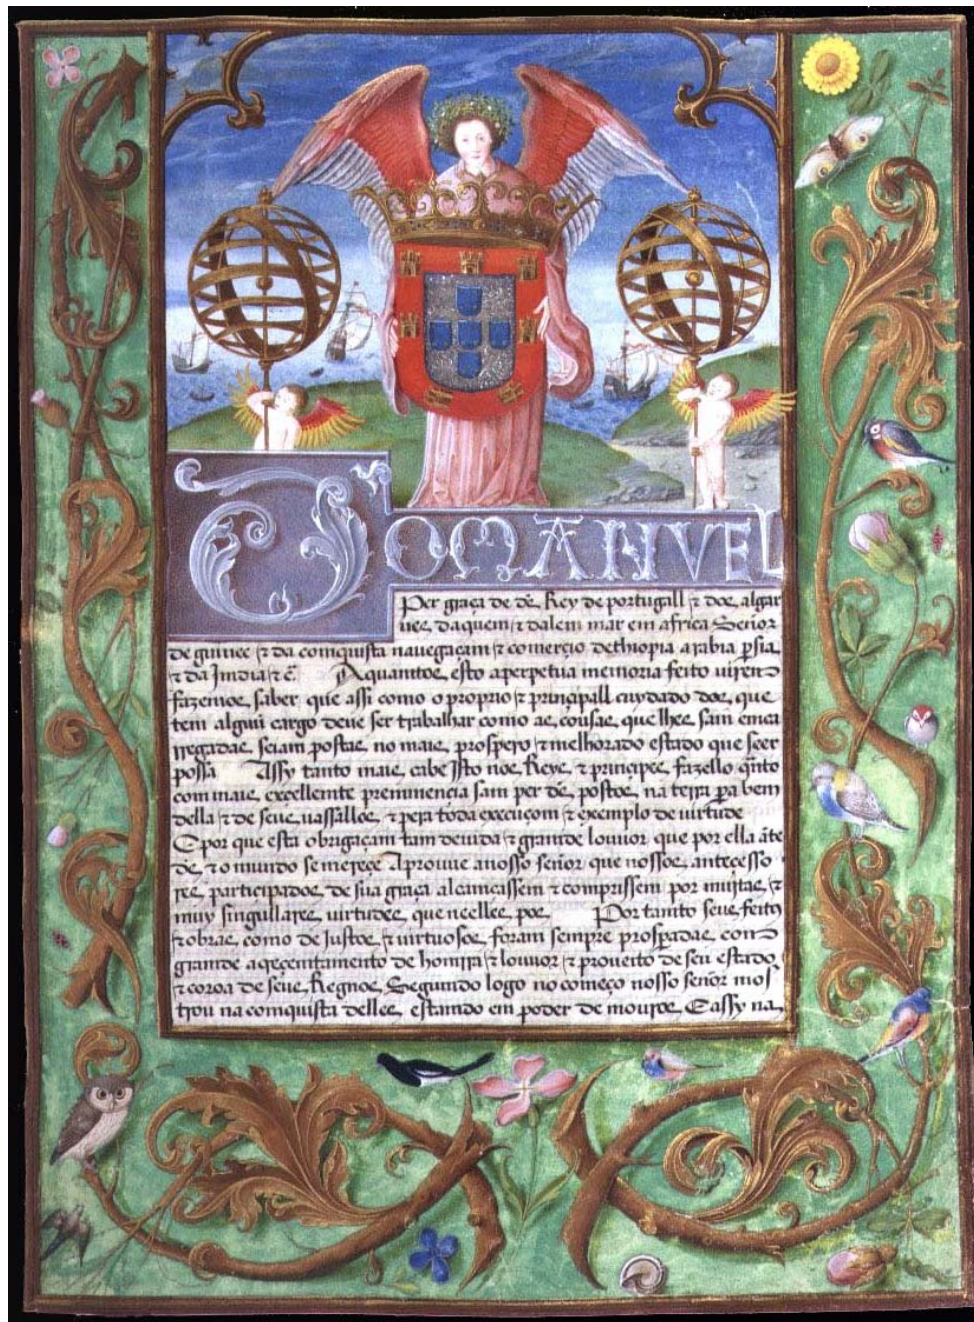 DOM MANUEL
Per graça de dẽ Rey de portugall ⁊ dos algar
ues daquem ⁊ dalem mar em africa Señor
de guinee ⁊ da comquista nauegaçam ⁊ comerçio dethiopia arabia psia
⁊ da Jmdia ⁊ c̃ Aquamtos esto aperpetua memoria feito virem
fazemos saber que assi como o proprio ⁊ prinçipall cuydado dos que
tem alguũ cargo deue ser trabalhar como as cousas que lhes sam emca
rregadas seiam postas no mais prospero ⁊ melhorado estado que seer
possa Assy tanto mais cabe Jsto nos Reys ⁊ prinçipes fazello q̃nto
com mais excellemte preminencia sam per dẽ postos na terra pa bem
della ⁊ de seus uassallos ⁊ pera toda execuçom ⁊ exemplo de uirtude
E por que esta obrigaçam tam deuida ⁊ grande louuor que por ella ãte
dẽ ⁊ o mundo se mereçe Aprouue anosso señor que nossos anteçesso
res participados de sua graça alcamcassem ⁊ comprissem por muitas ⁊
muy singullares uirtudes que neelles pos Por tamto seus feitos
⁊ obras como de Justos ⁊ uirtuosos foram sempre prospadas com
gramde aqeçemtamento de homrra ⁊ louuor ⁊ proueito de seu estado
⁊ coroa de seus Regnos Segumdo logo no começo nosso señor mos
trou na comquista delles estamdo em poder de mouros E assy na